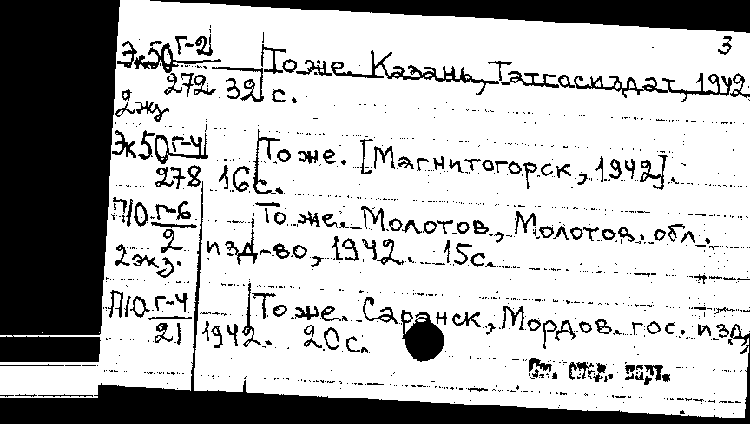 3
Эк50 Г-2 То же. Казань, Татгосиздат, 1942
272 32 с.
2экз
Эк50 Г-4 То же. [Магнитогорск, 1942].
278 16 с.
П/О Г-6 То же. Молотов, Молотов. обл.
2 изд-во, 1942. 15с.
2экз.
П/О Г-4 То же. Саранск, Мордов. гос. изд,
21 1942. 20с.
См. след. карт.